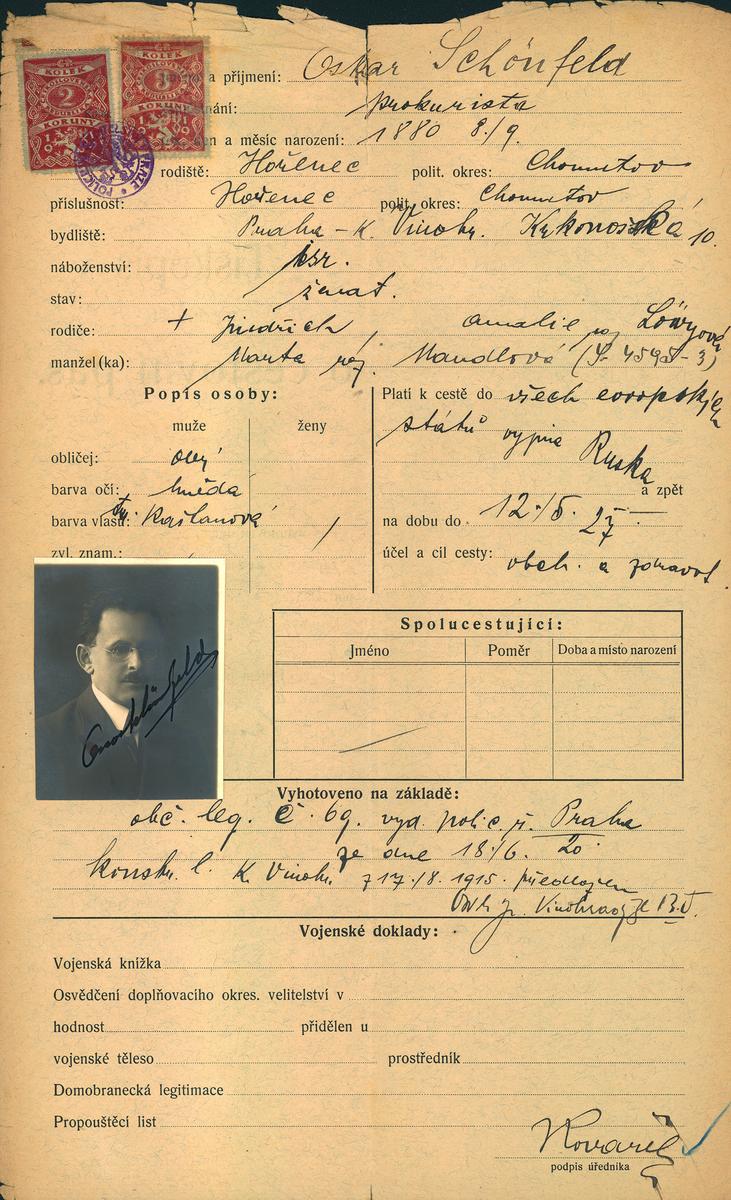 KOLEK
2
KORUNY
KOLEK
KORUNY
a příjmení: Oskar Schönfeld
prokurista
a měsíc narození: 1880 8./9.
rodiště: Hořenec polit. okres: Chomutov
příslušnost: Hořenec polit. okres: Chomutov
bydliště: Praha - K. Vinohr. Krkonošská 10.
náboženství: isr.
stav: ženat.
rodiče: + Jindřich, Amalie roz Löwyová
manžel(ka): Marta roz. Mandlová
Popis osoby:
muže ženy
obličej: oval
barva očí: hnědá
barva vlasů: kaštanová
zvl. znam.:
Platí k cestě do všech evropských
států vyjma Ruska
a zpět
na dobu do 12./5. 27
účel a cíl cesty: obch. a zdravot.
Oscar Schönfeld
Spolucestující:
Jméno Poměr Doba a místo narození
Vyhotoveno na základě:
obč. leg. č. 69. vyd. polic. ř. Praha
ze dne 18./6. 20
konskr. l. K. Vinohr. z 17./8. 1915. předložen
Vojenské doklady:
Vojenská knížka
Osvědčení doplňovacího okres. velitelství v
hodnost přidělen u
vojenské těleso prostředník
Domobranecká legitimace
Propouštěcí list
Kovařík
podpis úředníka